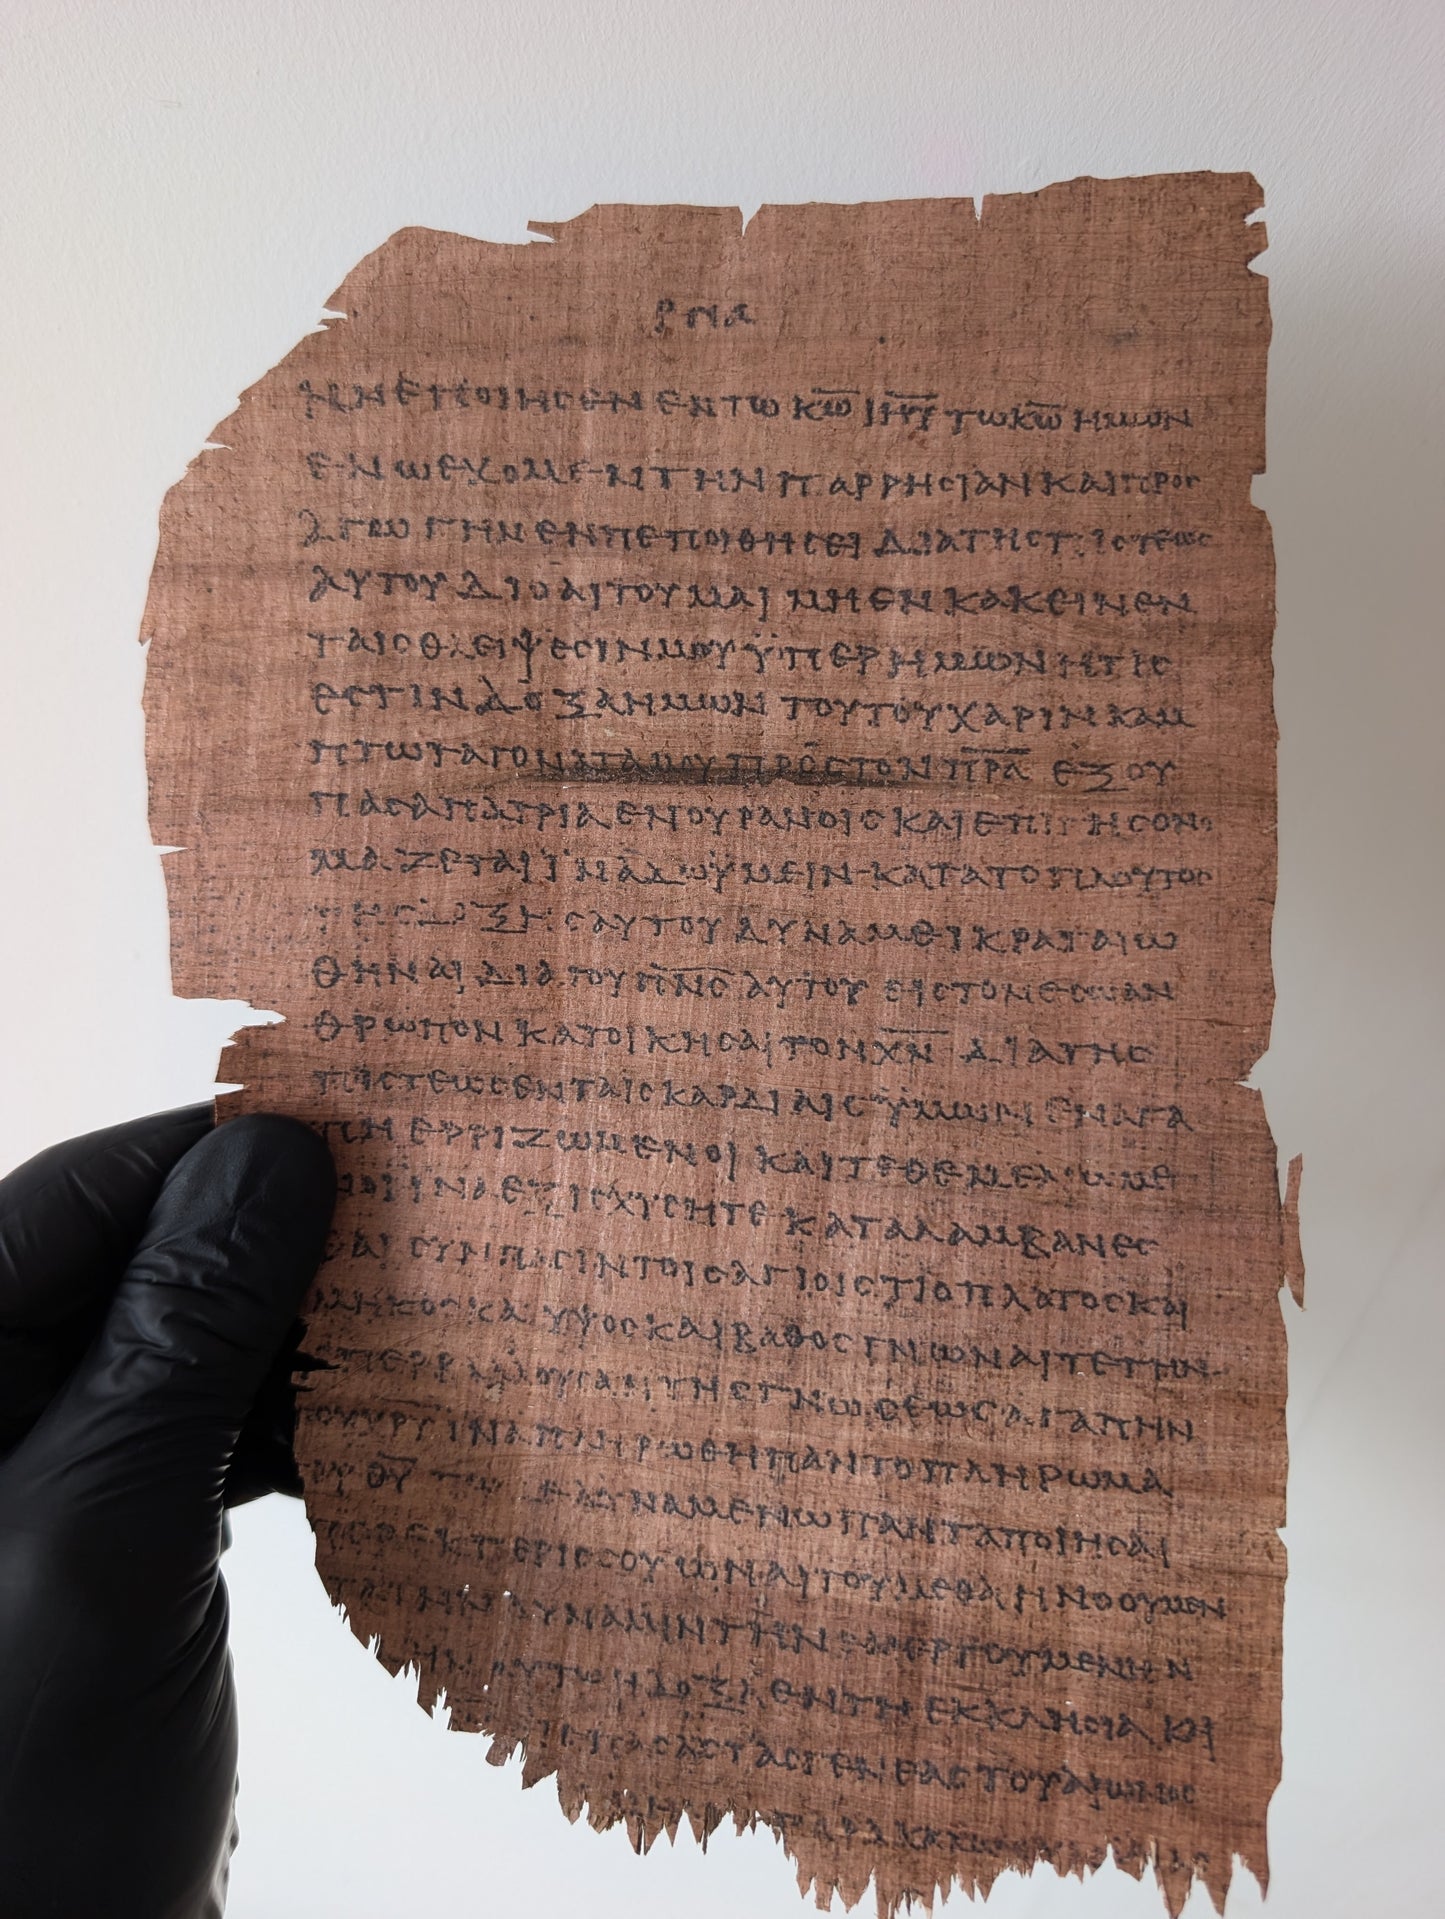 ΡΝΑ
ΗΝΕΠΟΙΗϹΕΝ ΕΝΤΩ Κ̅Ω̅ Ι̅Η̅Υ̅ ΤΩΚ̅Ω̅ ΗΜΩΝ
ΕΝΩΕΧΟΜΕΝΤΗΝΠΑΡΡΗϹΙΑΝΚΑΙΠΡΟϹ
ΑΓΩΓΗΝΕΝΠΕΠΟΙΘΗϹΕΙ ΔΙΑΤΗϹΠΙϹΤΕΩϹ
ΑΥΤΟΥΔΙΟΑΙΤΟΥΜΑΙ ΜΗΕΝΚΑΚΕΙΝΕΝ
ΤΑΙϹΘΛΕΙΨΕϹΙΝΜΟΥΫΠΕΡΗΜΩΝΗΤΙϹ
ΕϹΤΙΝΔΟΞΑΗΜΩΝ ΤΟΥΤΟΥΧΑΡΙΝΚΑΜ
ΠΤΩΤΑΓΟΝΑΤΑΜΟΥΠΡΟϹΤΟΝΠ̅Ρ̅Α̅ ΕΞΟΥ
ΠΑϹΑΠΑΤΡΙΑΕΝΟΥΡΑΝΟΙϹΚΑΙΕΠΙΓΗϹΟΝΟ
ΜΑΖΕΤΑΙΪΝΑΔΩΫΜΕΙΝΚΑΤΑΤΟΠΛΟΥΤΟϹ
ΤΗϹΔΟΞΗϹΑΥΤΟΥΔΥΝΑΜΕΙΚΡΑΤΑΙΩ
ΘΗΝΑΙΔΙΑΤΟΥΠ̅Ν̅Ϲ̅ ΑΥΤΟΥ ΕΙϹΤΟΝΕϹΩΑΝ
ΘΡΩΠΟΝΚΑΤΟΙΚΗϹΑΙΤΟΝΧ̅Ν̅ ΔΙΑΤΗϹ
ΠΙϹΤΕΩϹΕΝΤΑΙϹΚΑΡΔΙΑΙϹΫΜΩΝΕΝΑΓΑ
ΠΗΕΡΡΙΖΩΜΕΝΟΙ ΚΑΙΤΕΘΕΜΕΛΙΩΜΕ
ΝΟΙΙΝΑΕΞΙϹΧΥϹΗΤΕΚΑΤΑΛΑΜΒΑΝΕϹ
ΘΑΙ ϹΥΝΠΑϹΙΝΤΟΙϹΑΓΙΟΙϹΤΙΟΠΛΑΤΟϹΚΑΙ
ΜΗΚΟϹΚΑΙΥΨΟϹΚΑΙΒΑΘΟϹΓΝΩΝΑΙΤΕΤΗΝ
ΥΠΕΡΒΑΛΛΟΥϹΑΝΤΗϹΓΝΩϹΕΩϹΑΓΑΠΗΝ
ΤΟΥΧ̅Ρ̅Υ̅ ΙΝΑΠΛΗΡΩΘΗΠΑΝΤΟΠΛΗΡΩΜΑ
ΤΟΥΘ̅Υ̅ ΤΩ ΔΕΔΥΝΑΜΕΝΩΠΑΝΤΑΠΟΙΗϹΑΙ
ΥΠΕΡΕΚΠΕΡΙϹϹΟΥΩΝΑΙΤΟΥΜΕΘΑΗΝΟΟΥΜΕΝ
ΚΑΤΑΤΗΝΔΥΝΑΜΙΝΤΗΝΕΝΕΡΓΟΥΜΕΝΗΝ
ΗΜΙΝ ΑΥΤΩΗΔΟΞΑΕΝΤΗΕΚΚΛΗϹΙΑΚΑΙ
ΠΑϹΑϹΤΑϹΓΕΝΕΑϹΤΟΥΑΙΩΝΟϹ